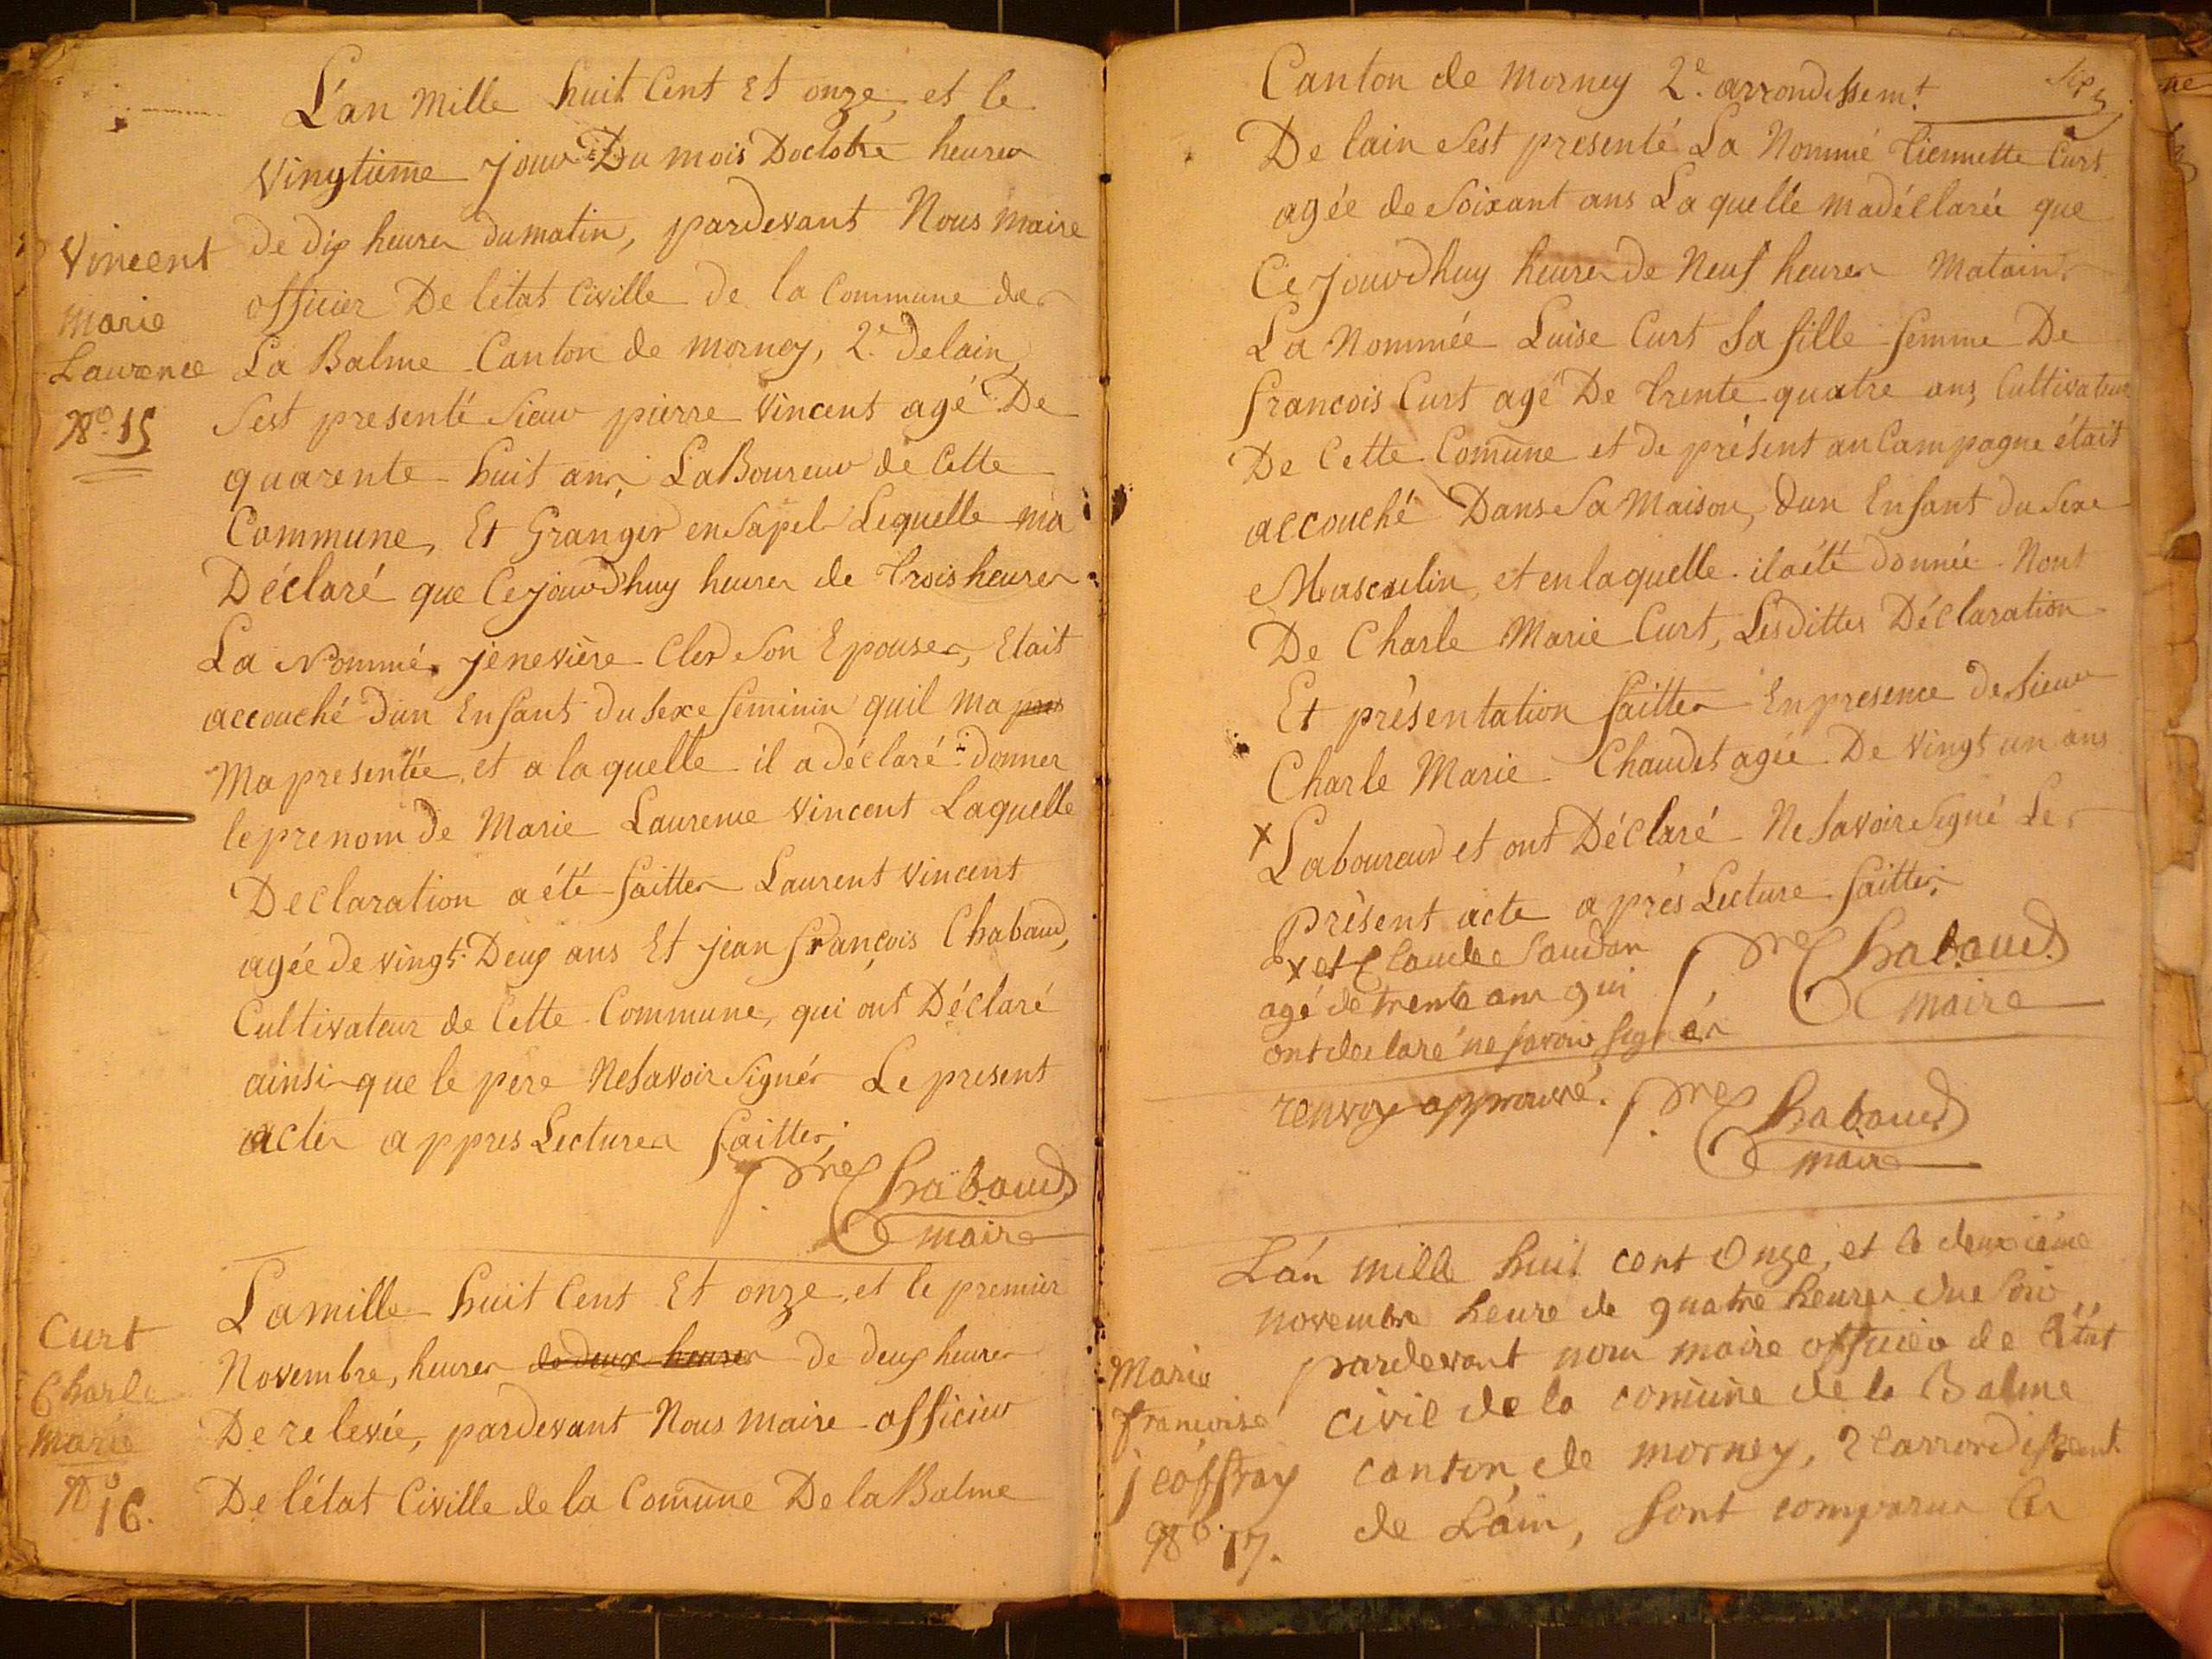 L'an Mille huit Cent Et onze, et le
Vingtieme jour Du mois Doctobre heures
de dix heures du matin, pardevant Nous Maire
Vincent
Marie
Laurence
No. 15
officier De létat Civille de la Commune de
La Balme Canton de Mornay, 2e. Delain,
Sest presenté Sieur pierre Vincent agé De
quarente huit ans, LaBoureur de Cette
Commune, Et Granger en Sapel Lequelle ma
Déclaré que Cejourdhuy heures de trois heures
La Nommé, jenevière Cler Son Epouse, Etait
accouché dun Enfant du Sexe feminin quil Ma pres
Ma presentée, et a laquelle il a déclaré donner
le prenom de Marie Laurence Vincent Laquelle
Declaration a été faitte Laurent Vincent
agée de vingt Deux ans Et jean francois Chabaud,
Cultivateur de Cette Commune, qui ont Déclaré
ainsi que le pere Ne Savoir Signér Le present
acte appres Lecture faitte,
Chabaud
maire
Lamille huit Cent Et onze, et le premier
Curt
Charle
Marie
No
16.
Novembre, heures de deux heures de deux heures
De relevée, pardevant Nous Maire officier
De létat Civille de la Comune De la Balme
Canton de Mornay 2e. arrondissemt.
De lain Sest presenté La Nommé tiennette Curt
agée de Soixant ans Laquelle madéclarée que
Ce jourdhuy heures de Neuf heures Matain
La Nommée Luise Curt Sa fille femme De
francois Curt agé De trente quatre ans Cultivateur
De Cette Comune et de présent an Campagne était
accouché Dans Sa Maison, dun Enfant du Sexe
Masculin, et en laquelle il a été donnée Nont
De Charle Marie Curt, Lesdittes Déclaration
Et présentation faitte En presence de Sieur
Charle Marie Chaudet agée De Vingt un ans
x Laboureur et ont Déclaré Ne Savoir Signé Le
Présent acte aprés Lecture faitte,
x et Claude Saudan
agé de trente ans qui
ont declaré ne savoir signér
Chabaud
maire
renvoy approuvé.
Chabaud
maire
L'an mille huit cent Onze, et le deuxième
novembre heure de quatre heures du Soir
pardevant nous maire officier de l'état
Marie
francoise
jeoffray
No. 17.
civil de la comune de la Balme
canton de mornay, 2e arrondissement
de L'ain, sont comparus les